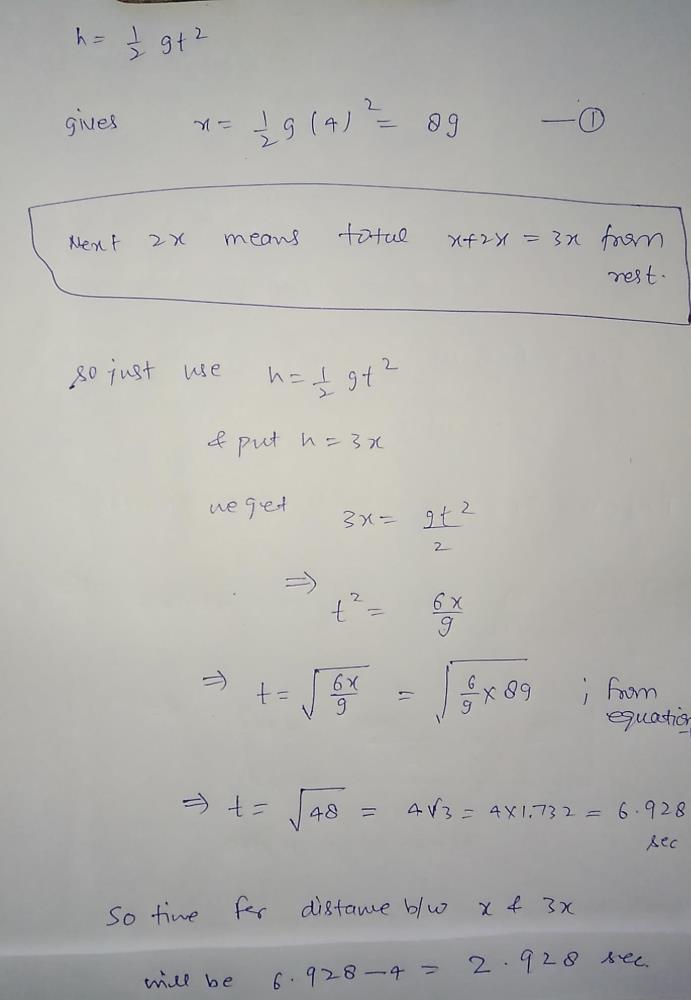 h = 1/2 gt²
gives x = 1/2 g (4)² = 8g —①
Next 2x means total x+2x = 3x from
rest.
so just use h = 1/2 gt²
& put h = 3x
we get 3x = gt²/2
⇒ t² = 6x/g
⇒ t = √(6x/g) = √(6/g × 8g) ; from
equation
⇒ t = √48 = 4√3 = 4×1.732 = 6.928
sec
So time for distance b/w x & 3x
will be 6.928 – 4 = 2.928 sec.